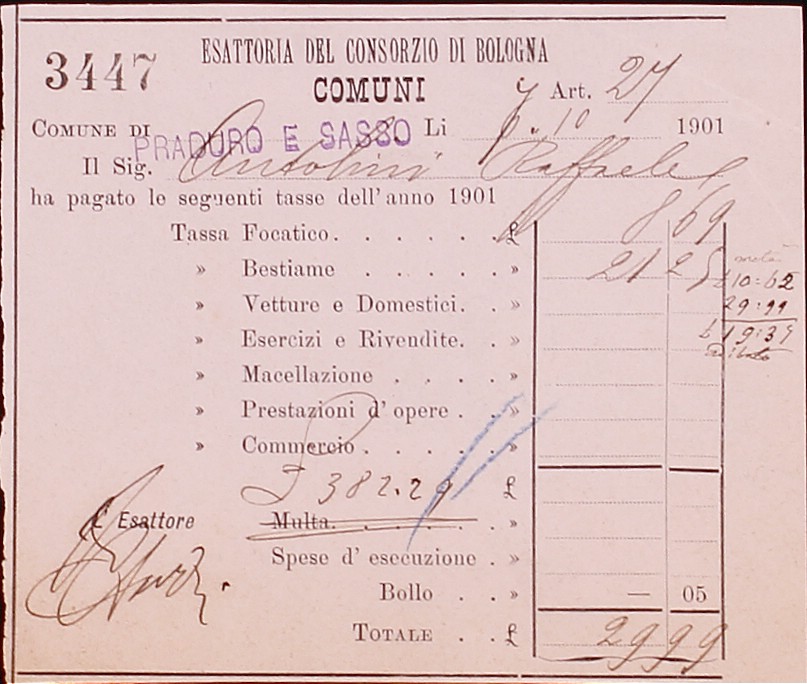 3447
ESATTORIA DEL CONSORZIO DI BOLOGNA
COMUNI
Art. 27
COMUNE DI PRADURO E SASSO Li 10 1901
Il Sig. Antolini Raffaele
ha pagato le seguenti tasse dell'anno 1901
Tassa Focatico. . . . . . £ 8 69
» Bestiame . . . . . » 21 25
metà
» Vetture e Domestici. . » £ 10:62
29:99
» Esercizi e Rivendite. . » £ 19:37
» Macellazione . . . . »
» Prestazioni d'opere . . »
» Commercio . . . . . »
382.29 £
L'Esattore Multa. . . . . . »
Spese d'esecuzione . »
Bollo . . » — 05
TOTALE . . £ 29 99